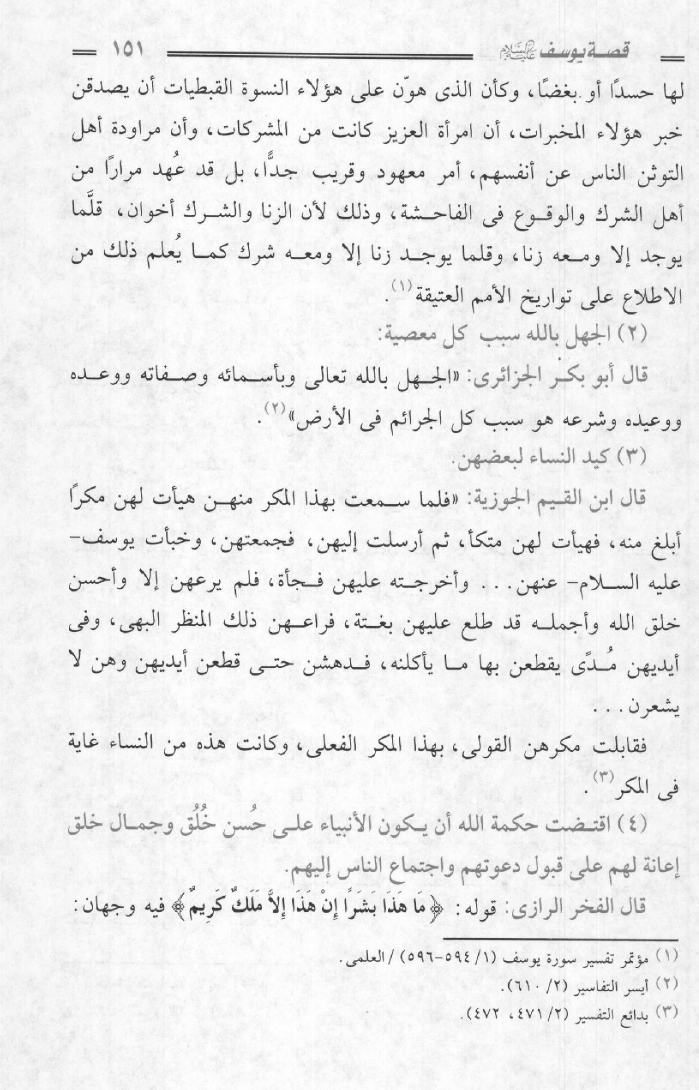 قصة يوسف عليه السلام
١٥١
لها حسدًا أو بغضًا، وكأن الذى هوّن على هؤلاء النسوة القبطيات أن يصدقن
خبر هؤلاء المخبرات، أن امرأة العزيز كانت من المشركات، وأن مراودة أهل
التوثن الناس عن أنفسهم، أمر معهود وقريب جدًّا، بل قد عُهد مرارًا من
أهل الشرك والوقوع فى الفاحشة، وذلك لأن الزنا والشرك أخوان، قلَّما
يوجد إلا ومعه زنا، وقلما يوجد زنا إلا ومعه شرك كما يُعلم ذلك من
الاطلاع على تواريخ الأمم العتيقة(١).
(٢) الجهل بالله سبب كل معصية:
قال أبو بكر الجزائرى: «الجهل بالله تعالى وبأسمائه وصفاته ووعده
ووعيده وشرعه هو سبب كل الجرائم فى الأرض»(٢).
(٣) كيد النساء لبعضهن.
قال ابن القيم الجوزية: «فلما سمعت بهذا المكر منهن هيأت لهن مكرًا
أبلغ منه، فهيأت لهن متكأ، ثم أرسلت إليهن، فجمعتهن، وخبأت يوسف-
عليه السلام- عنهن... وأخرجته عليهن فجأة، فلم يرعهن إلا وأحسن
خلق الله وأجمله قد طلع عليهن بغتة، فراعهن ذلك المنظر البهى، وفى
أيديهن مُدًى يقطعن بها ما يأكلنه، فدهشن حتى قطعن أيديهن وهن لا
يشعرن...
فقابلت مكرهن القولى، بهذا المكر الفعلى، وكانت هذه من النساء غاية
فى المكر(٣).
(٤) اقتضت حكمة الله أن يكون الأنبياء على حُسن خُلُق وجمال خلق
إعانة لهم على قبول دعوتهم واجتماع الناس إليهم.
قال الفخر الرازى: قوله: ﴿مَا هَذَا بَشَرًا إِنْ هَذَا إِلاَّ مَلَكٌ كَرِيمٌ﴾ فيه وجهان:
(١) مؤتمر تفسير سورة يوسف (١/ ٥٩٤-٥٩٦) /العلمى.
(٢) أيسر التفاسير (٢/ ٦١٠).
(٣) بدائع التفسير (٢/ ٤٧١، ٤٧٢).